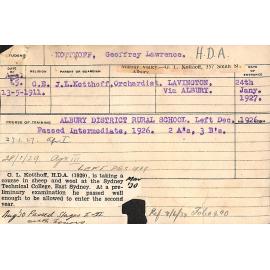 STUDENT KOTTHOFF, Geoffrey Lawrence. H.D.A.
Murray Valley - G. L. Kotthoff, 357 Smith St., Albury
AGE RELIGION PARENT OR GUARDIAN
13-5-1911. C.E. J.L. Kotthoff, Orchardist, LAVINGTON, Via ALBURY. 24th Jany. 1927.
COURSE OF TRAINING ALBURY DISTRICT RURAL SCHOOL. Left Dec. 1926
Passed Intermediate, 1926. 2 A's, 3 B's.
LEFT DEC 1929
G. L. Kotthoff, H.D.A. (1929), is taking a
course in sheep and wool at the Sydney
Technical College, East Sydney. At a pre-
liminary examination he passed well
enough to be allowed to enter the second
year.
Mar 30
Aug 30 Passed Stages I-II
with honors